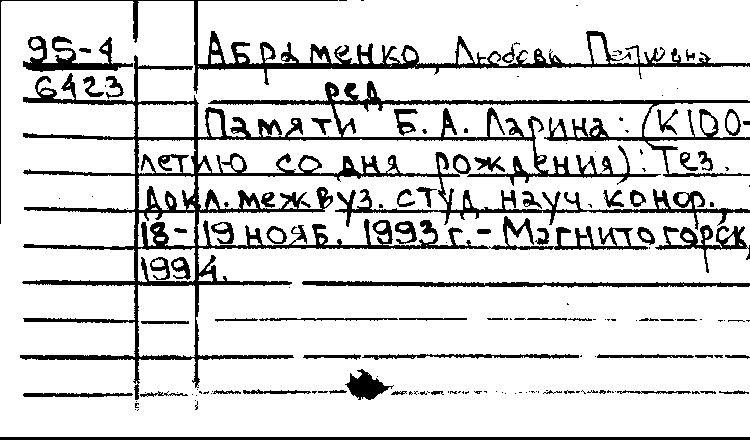 95-4 Абраменко, Любовь Петровна
6423 ред
Памяти Б. А. Ларина: (К 100-
летию со дня рождения): Тез.
докл. межвуз. студ. науч. конф.,
18-19 нояб. 1993 г. - Магнитогорск,
1994.